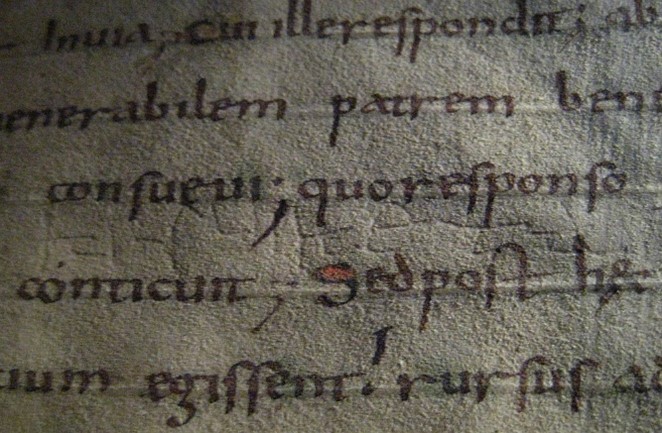 Inuia; cui ille respondit; ab
uenerabilem patrem bene
consueui; quo responso
conticuit; Sed post hęc
tium egissent. rursus ad